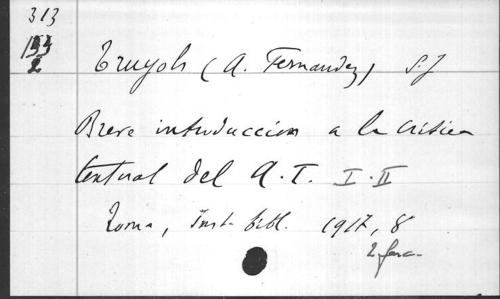 313
133
2
Truyols (A. Fernandez) S.J
Breve introduccion a la critica
textual del A.T. I-II
Roma, Inst. bibl. 1917, 8
2 fasc.